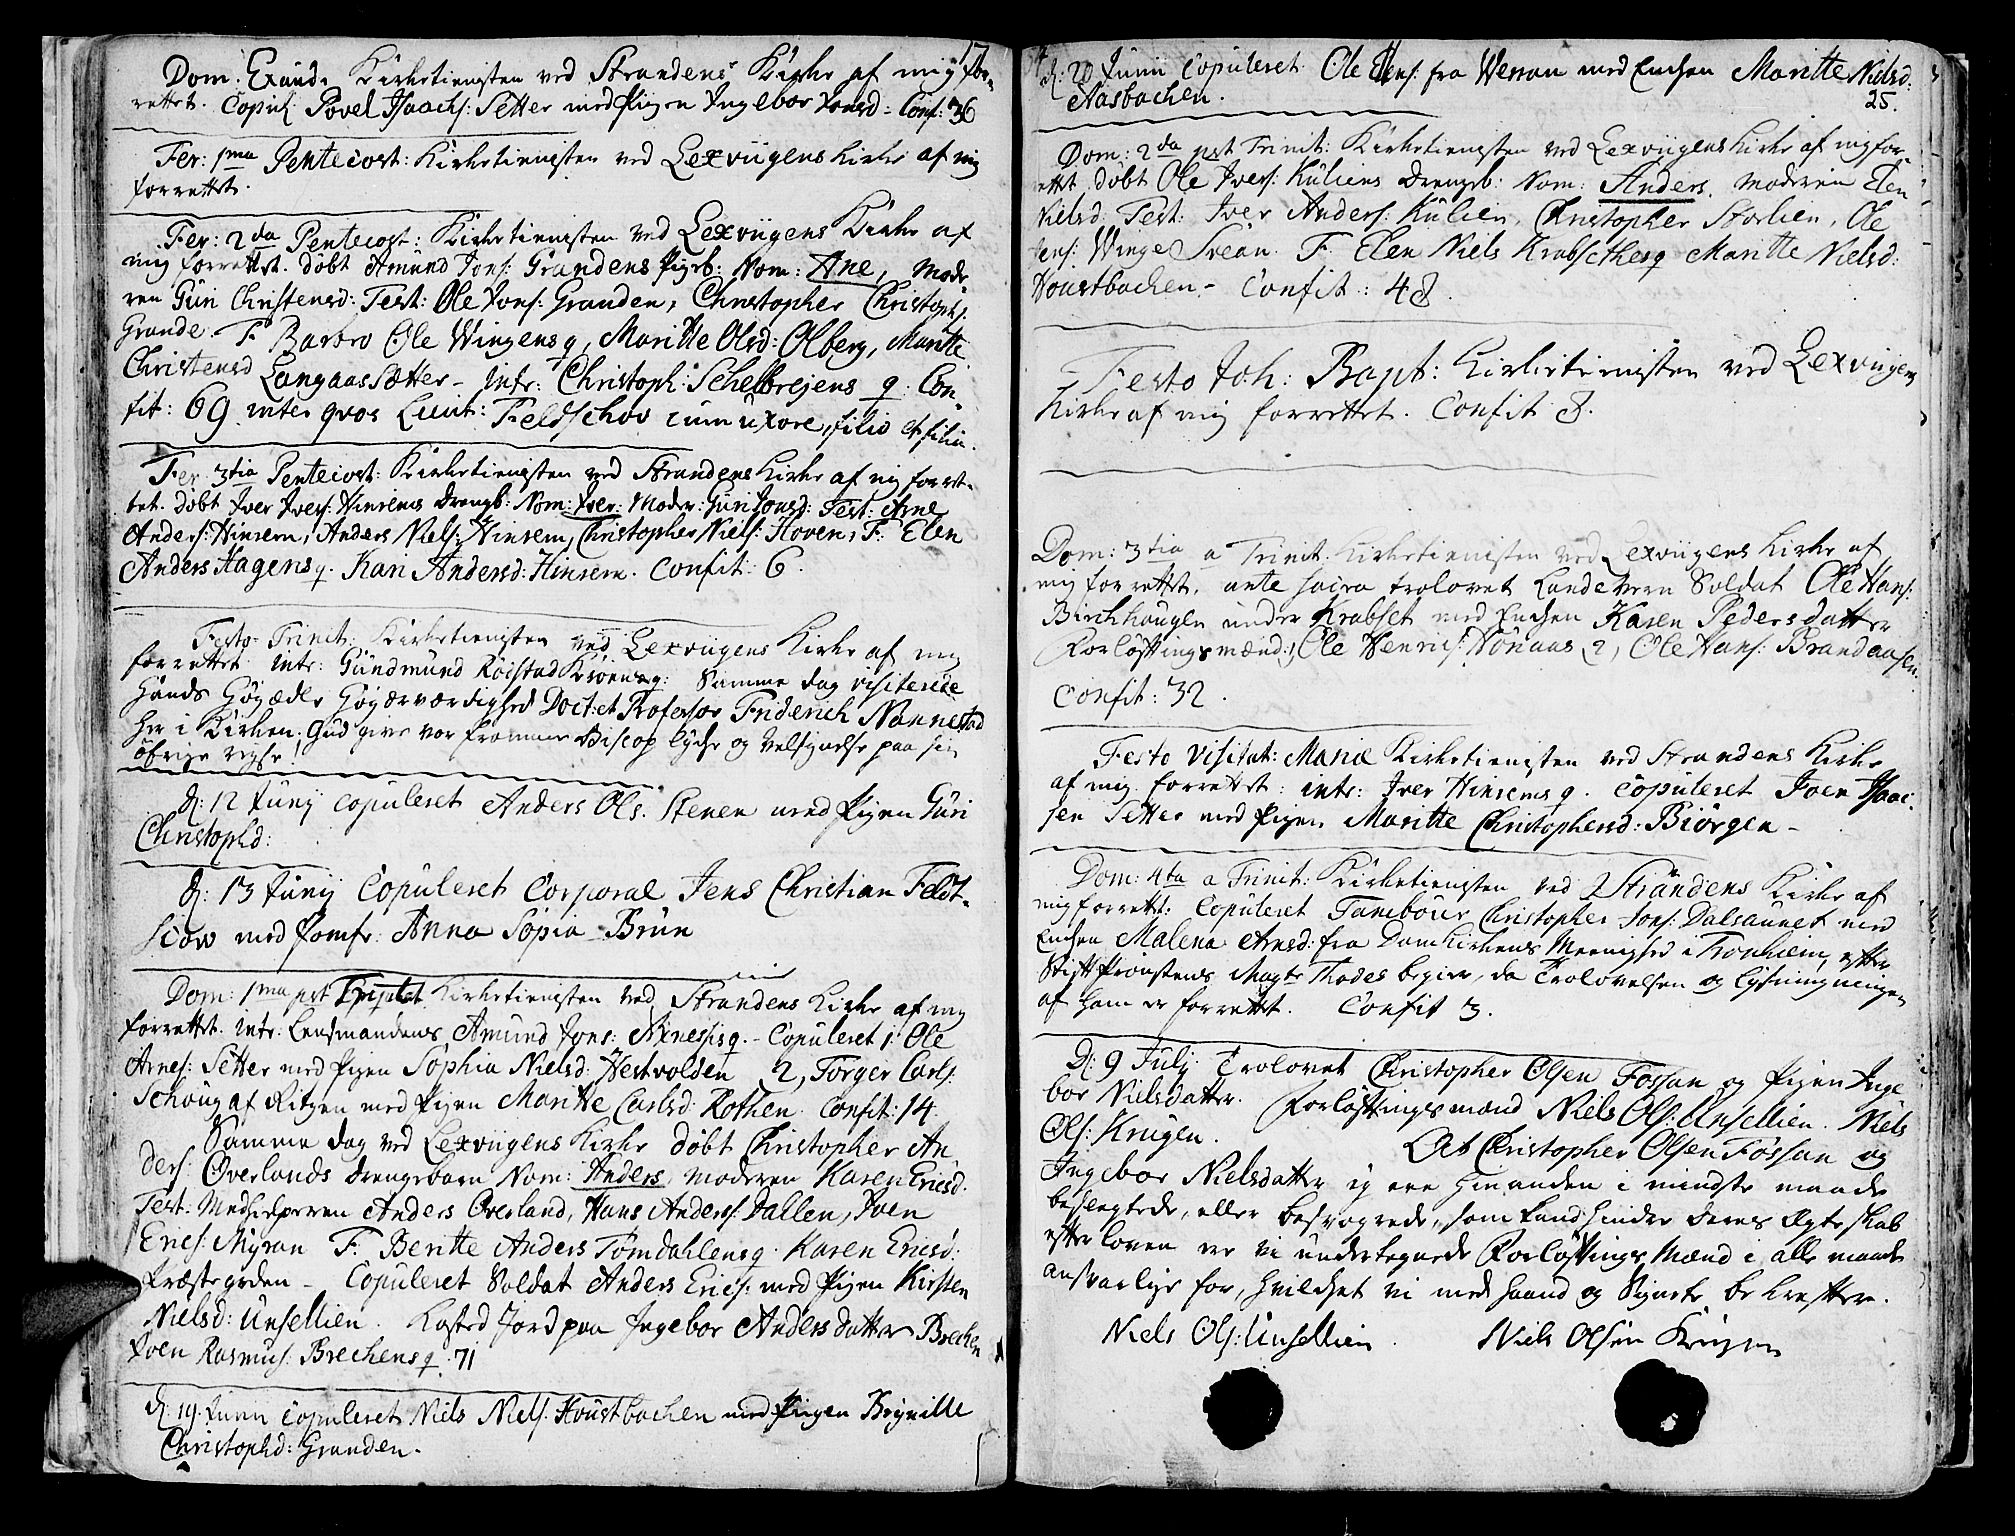 17
Dom. Exaud. Kirketienisten ved Strandens Kirke af mig for-
rettet. Copul. Povel Isaachs: Setter med Pigen Ingebor Jonsd - Conf: 36
Fer: 1ma Pentecost: Kirketienisten ved Lexviigens Kirke af mig
forrettet.
Fer: 2da Pentecost: Kirketienisten ved Lexviigens Kirke af
mig forrettet. døbt Amund Jons: Grandens Pigeb: Nom: Ane, Mode-
ren Guri Christensd: Test: Ole Jons: Granden, Christopher Christophs.
Grande - F. Barbro Ole Wingens q, Maritte Olsd: Olberg, Maritte
Christensd Langaas Sætter - intr: Christoph: Schelbrejens q. Con-
fit: 69 inter qvos Lieut: Feldschov cum uxore, filio et filia.
Fer 3tia Pentecost: Kirketienisten ved Strandens Kirke af mig forret-
tet. døbt Iver Ivers: Hinsems Drengb: Nom: Iver: Moder: Guri Jonsd: Test: Arne
Anders: Hinsem, Anders Niels: Hinsem, Christopher Niels: Hoven, F. Elen
Anders Hagens q. Kari Andersd: Hinsem. Confit: 6.
Festo Trinit: Kirketienisten ved Lexviigens Kirke af mig
forrettet intr: Gundmund Röistad q: Samme dag visiterede
Hands Høyædle Høyærværdighed Doct: et Professor Friderich Nannestad
her i Kirken. Gud give vor fromme Biscop lycke og Velsignelse paa sin
øvrige reyse!
d: 12 Junij copuleret Anders Ols. Stenen med Pigen Guri
Christophd:
d: 13 Junij Copuleret Corporal Jens Christian Feldt-
scow med Jomfr: Anna Sopia Brun
Dom: 1ma pst Trinit Kirketienisten ved Strandens Kirke af mig
forrettet. intr: Lensmandens Amund Jons: q. - Copuleret 1. Ole
Arnes: Setter med Pigen Sophia Nielsd: Hestvolden 2, Torger Carls:
Schoug af Ritzen med Pigen Maritte Carlsd: Rothen. Confit: 14.
Samme dag ved Lexviigens Kirke døbt Christopher An
ders: Overlands drengebarn Nom: Anders, moderen Karen Ericsd:
Test: Medhielperen Anders Overland, Hans Anders: Dallen, Joen
Erics: Myran F. Beritte Anders Tømdahlens q. Karen Ericsd:
Præstegrden - Copuleret Soldat Anders Erics: med Pigen Kirsten
Nielsd: Unsellien. Kasted Jord paa Ingebor Andersdatter Brechen
Joen Rasmus: Brechens q. 71
d: 19 Junii copuleret Niels Niels. Houstbachen med Pigen Brynille
Christophd: Granden.
d: 20 Junii Copuleret Ole Jens: fra Werran med Enchen Maritte Nielsd:
Aasbachen. 25.
Dom: 2da pst Trinit: Kirketienisten ved Lexviigens Kirke af mig for
rettet døbt Ole Ivers: Kuliens Drengeb: Nom: Anders. Moderen Elen
Nielsd: Test: Iver Anders: Kulien, Christopher Storlien, Ole
Jens: Winge Svean. F. Elen Niels Krabsethes q Maritte Nielsd:
Houstbachen - Confit: 48.
Festo Joh: Bapt: Kirketienisten ved Lexviigens
Kirke af mig forrettet. Confit 8.
Dom: 3tia a Trinit. Kirketienisten ved Lexviigens Kirke af
mig forrettet. ante sacra trolovet Landevern Soldat Ole Hans:
Birchhaugen under Krabset med Enchen Karen Pedersdatter
Forløftingsmænd: 1, Ole Henrics: Hönaas 2, Ole Hans: Brandaasen.
Confit: 32.
Festo Visitat: Mariæ Kirketienisten ved Strandens Kirke
af mig forrettet: intr: Iver Hinsems q. Copuleret Joen Isaac-
sen Setter med Pigen Maritte Christophersd: Biörgen -
Dom: 4ta a Trinit: Kirketienisten ved Strandens Kirke af
mig forrett: Copuleret Tambour Christopher Jons: Dalsaunet med
Enchen Malena Arnsd: fra DomKirkens Meenighed i Tronhiem, efter
Stift Prousten Magr: Thodes begier, da Trolovelsen og Lysningningen
af ham er forrettet. Confit 3.
D: 9 Julij Trolovet Christopher Olsen Fossan og Pigen Inge
bor Nielsdatter. Forløftingsmænd Niels Ols: Unsellien. Niels
Ols: Krugen. At Christopher Olsen Fossan og
Ingebor Nielsdatter ej ere hinanden i mindste maade
beslegtede, eller besvogrede, som kand hindre deres Ægteskab
efter loven ere vi undertegnede Forløftings Mænd i alle maader
ansvarlige for, hvilchet vi med haand og Signete bekrefter.
Niels Ols: Unsellien Niels Olsen Krugen